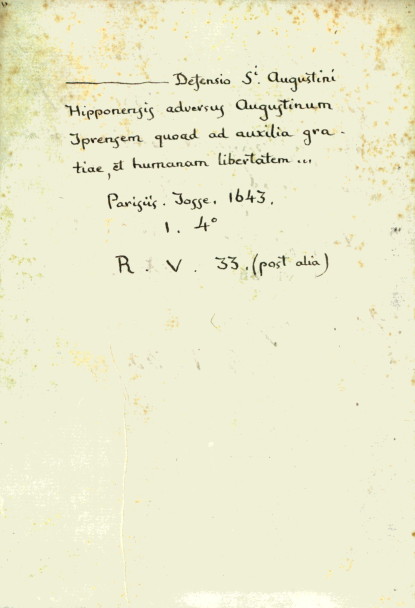 ——— Defensio Sⁱ. Augustini
Hipponensis adversus Augustinum
Iprensem quoad ad auxilia gra-
tiae, et humanam libertatem...
Parisiis. Josse. 1643.
1. 4°
R. V. 33. (post alia)